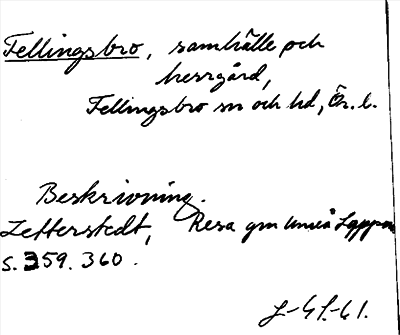 Fellingsbro, samhälle och
herrgård,
Fellingsbro sn och hd, Ör. l.
Beskrivning.
Zetterstedt, Resa gm Umeå Lappm
s. 359. 360.